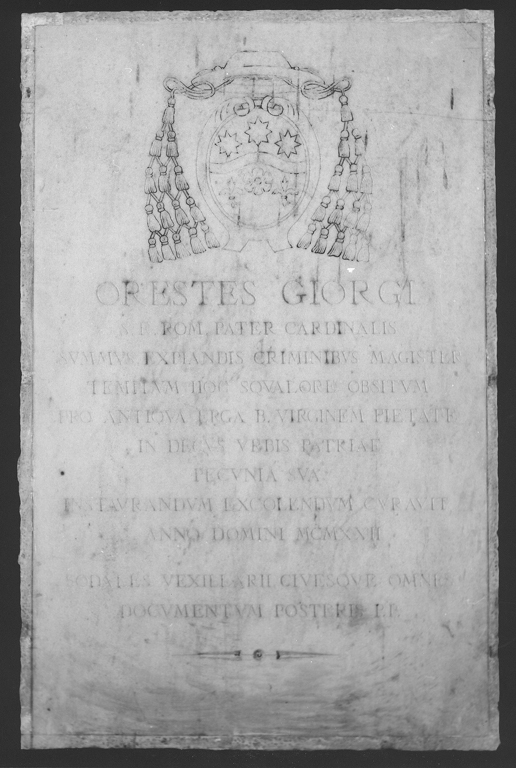 ORESTES GIORGI
S. E. ROM. PATER CARDINALIS
SVMMVS EXPIANDIS CRIMINIBVS MAGISTER
TEMPLVM HOC SQVALORE OBSITVM
PRO ANTIQVA ERGA B. VIRGINEM PIETATE
IN DECVS VRBIS PATRIAE
PECVNIA SVA
INSTAVRANDVM EXCOLENDVM CVRAVIT
ANNO DOMINI MCMXXII
SODALES VEXILLARII CIVESQVE OMNES
DOCVMENTVM POSTERIS PP.